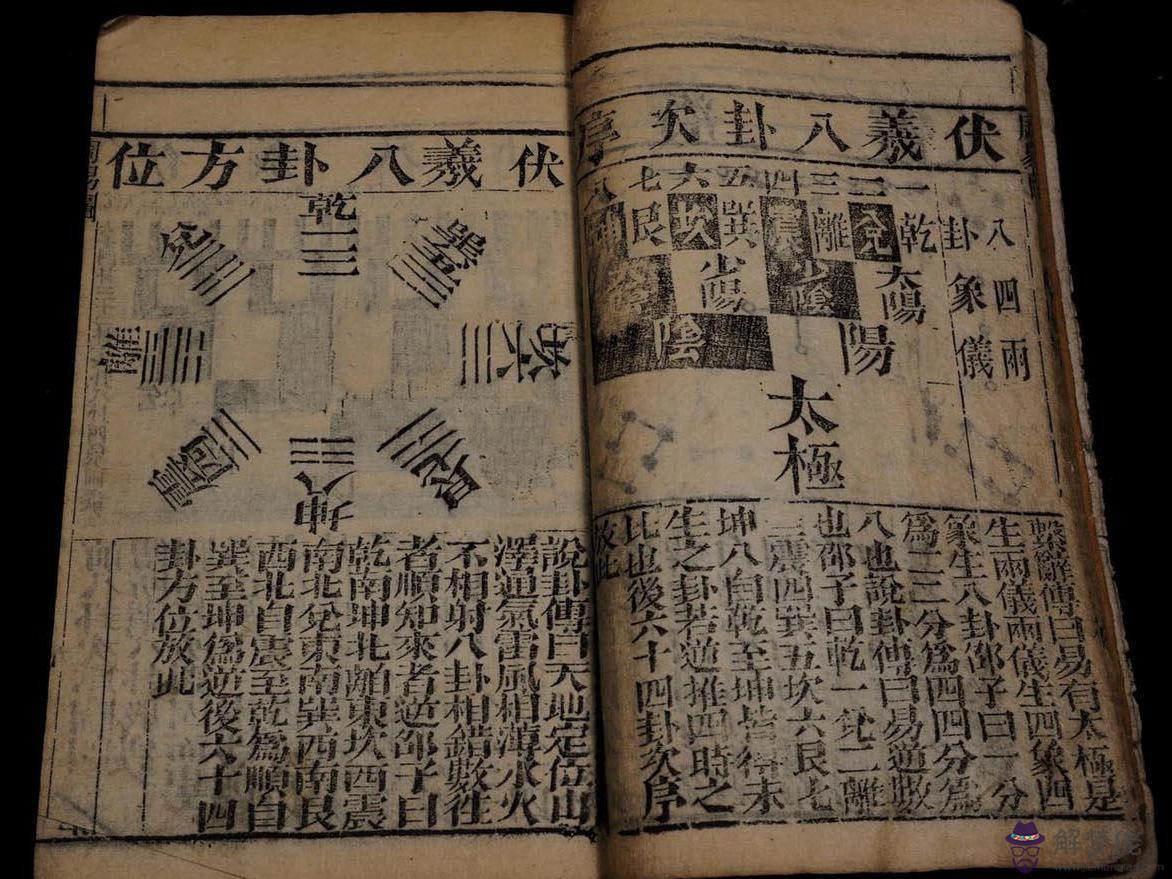 伏羲八卦次序
八卦
四象
兩儀
一二三四五六七八
乾兌離震巽坎艮坤
太陽 少陰 少陽
陽 陰
太極
繫辭傳曰易有太極是
生兩儀兩儀生四象四
象生八卦邵子曰一分
爲二二分爲四四分爲
八也說卦傳曰易逆數
也邵子曰乾一兌二離
三震四巽五坎六艮七
坤八自乾至坤皆得未
生之卦若逆推四時之
比也後六十四卦次序
放此
伏羲八卦方位
乾一
兌二
離三
震四
巽五
坎六
艮七
坤八
說卦傳曰天地定位山
澤通氣雷風相薄水火
不相射八卦相錯數往
者順知來者逆邵子曰
乾南坤北離東坎西震
南北兌東南巽西南艮
西北自震至乾爲順自
巽至坤爲逆後六十四
卦方位放此